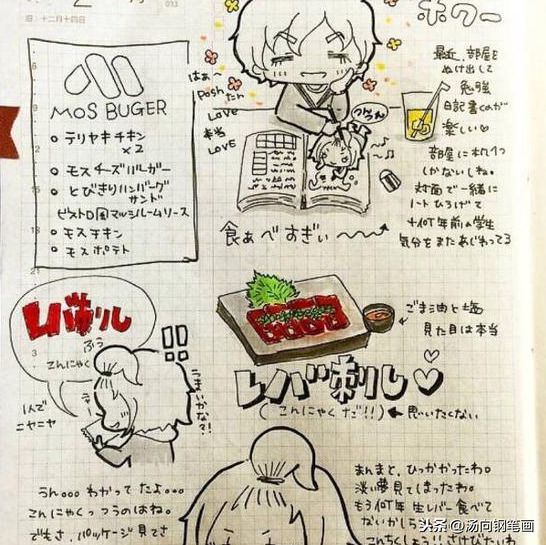 旧. 十二月十四日
MOS BUGER
テリヤキチキン
×2
モスチーズバーガー
とびきりハンバーグ
サンド
モスチキン
モスポテト
はぁ〜
Poshたん
LOVE
本当
LOVE
食ぁべすぎぃ〜
最近、部屋を
ぬけ出して
勉強
日記書くのが
楽しい
部屋に机1つ
しかないしね。
対面で一緒に
ノートひろげて
十何年前の学生
気分をまたあじわってる
レバ刺し
ふう
こんにゃく
!!
うまいかな?!
1人で
ニヤニヤ
レバ刺し♡
(こんにゃくだ!!)←思いたくない
ごま油と塩
見た目は本当
うん。。。わかってたよ。。。
こんにゃくっつうのはね。
でもさ、パッケージ見てさ
まんまと、ひっかかったわ。
淡い夢見てしまったわ。
もう何年生レバー食べて
ないかしら
こんちくしょう!!さけびたいわ
头条@汤向钢笔画